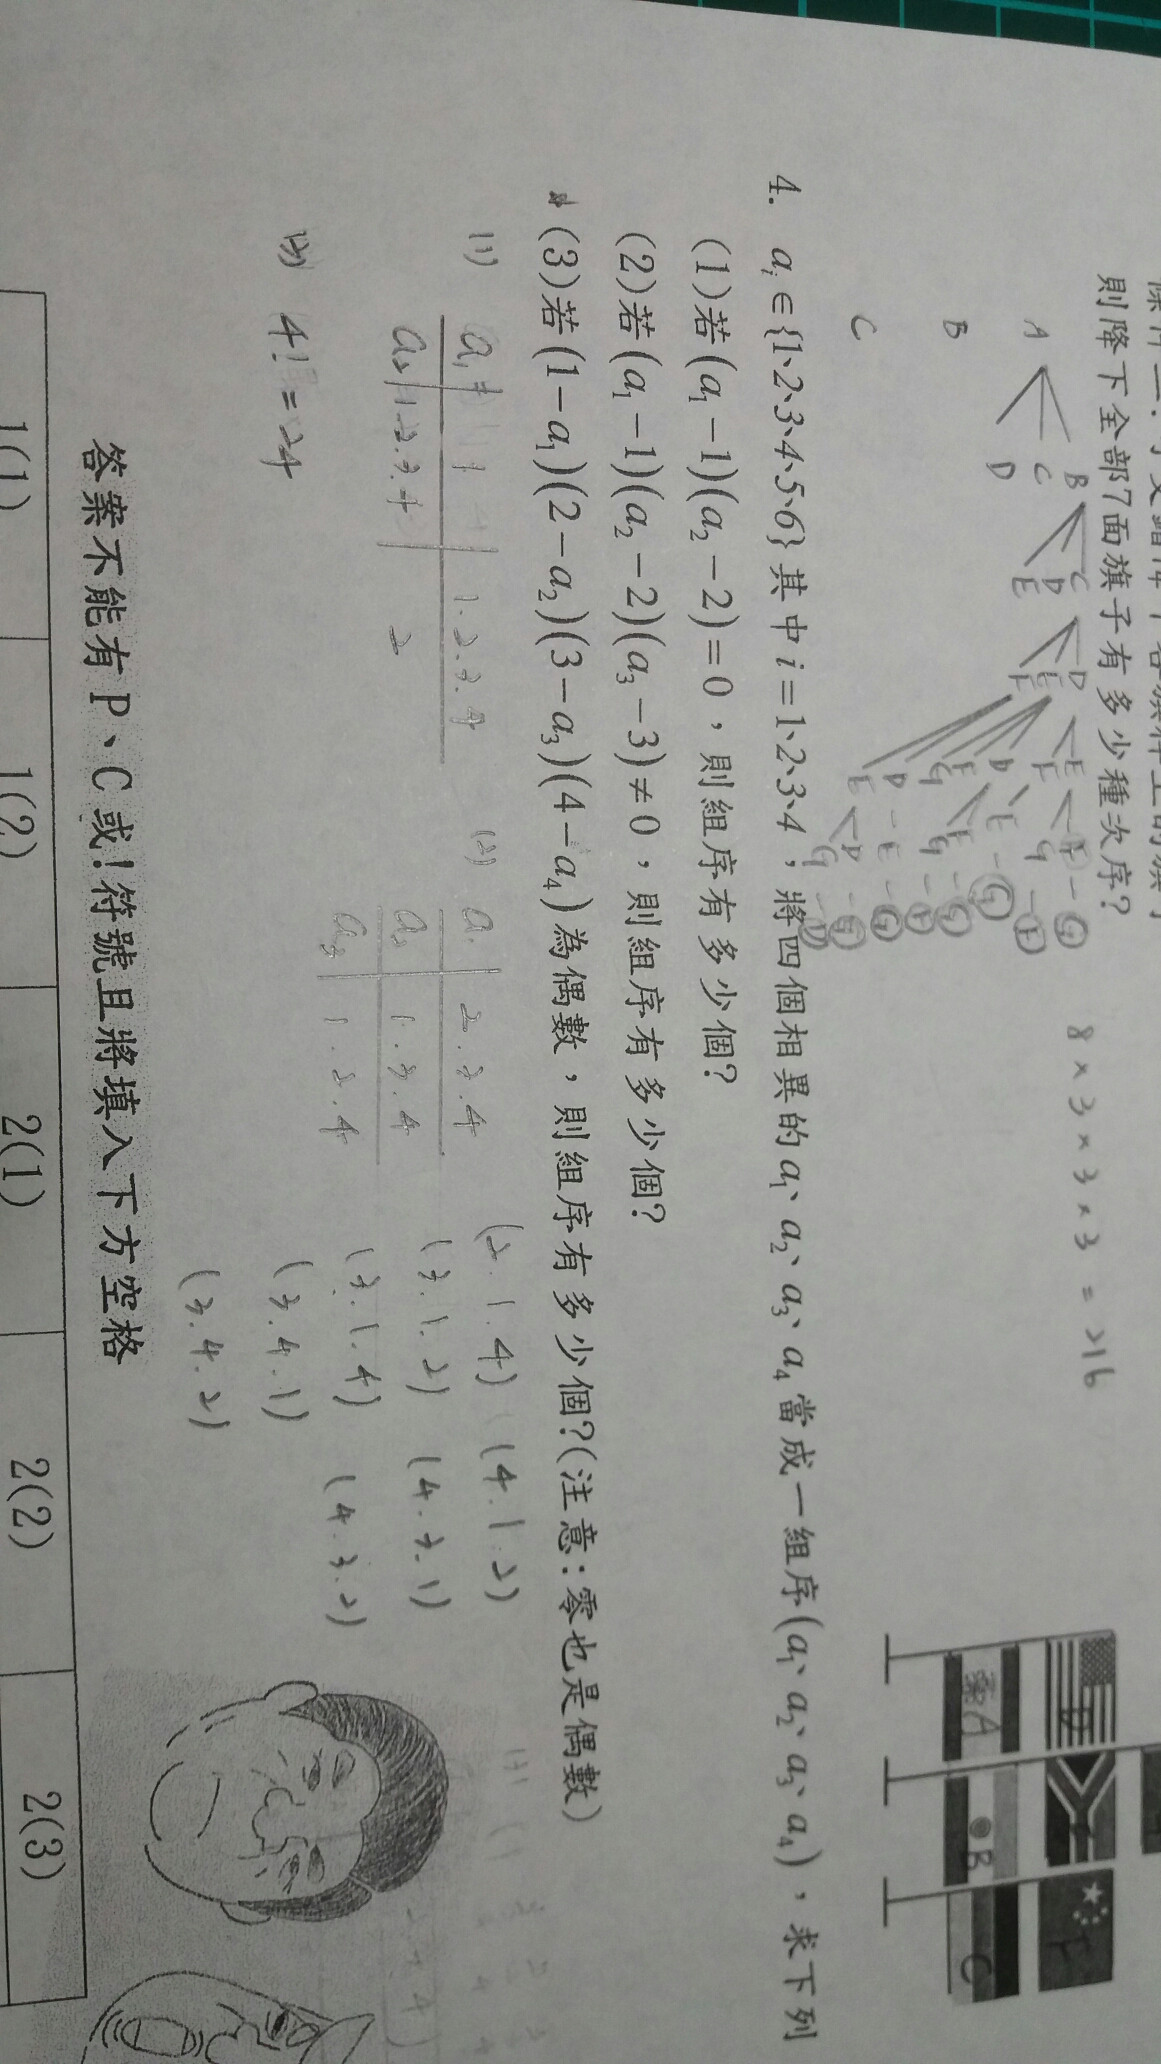 則降下全部7面旗子有多少種次序?
8 × 3 × 3 × 3 = 216
A
B
C
B
C
D
C
D
E
D
E
F
A
B
C
4. a₁∈{1、2、3、4、5、6}其中i=1、2、3、4，將四個相異的a₁、a₂、a₃、a₄當成一組序(a₁、a₂、a₃、a₄)，求下列
(1)若(a₁−1)(a₂−2)=0，則組序有多少個?
(2)若(a₁−1)(a₂−2)(a₃−3)≠0，則組序有多少個?
(3)若(1−a₁)(2−a₂)(3−a₃)(4−a₄)為偶數，則組序有多少個?(注意:零也是偶數)
(1)
a₁ 1 1.2.3.4
a₂ 1.2.3.4 2
(2)
a₁ 2.3.4
a₂ 1.3.4
a₃ 1.2.4
(2.1.4) (4.1.2)
(3.1.2) (4.3.1)
(3.1.4) (4.3.2)
(3.4.1)
(3.4.2)
(3) 4! = 24
答案不能有P、C或!符號且將填入下方空格
1(1) 1(2) 2(1) 2(2) 2(3)